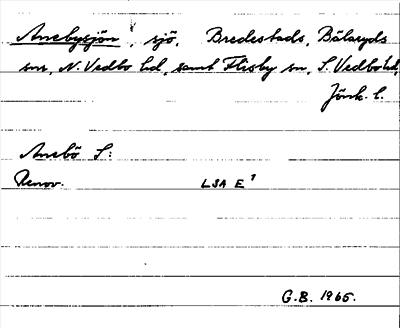 Anebysjön, sjö, Bredestads, Bälaryds
snr, N. Vedbo hd, samt Flisby sn, S. Vedbo hd,
Jönk. l.
Anebö S:
Renov. LSA E 1
G.B. 1965.